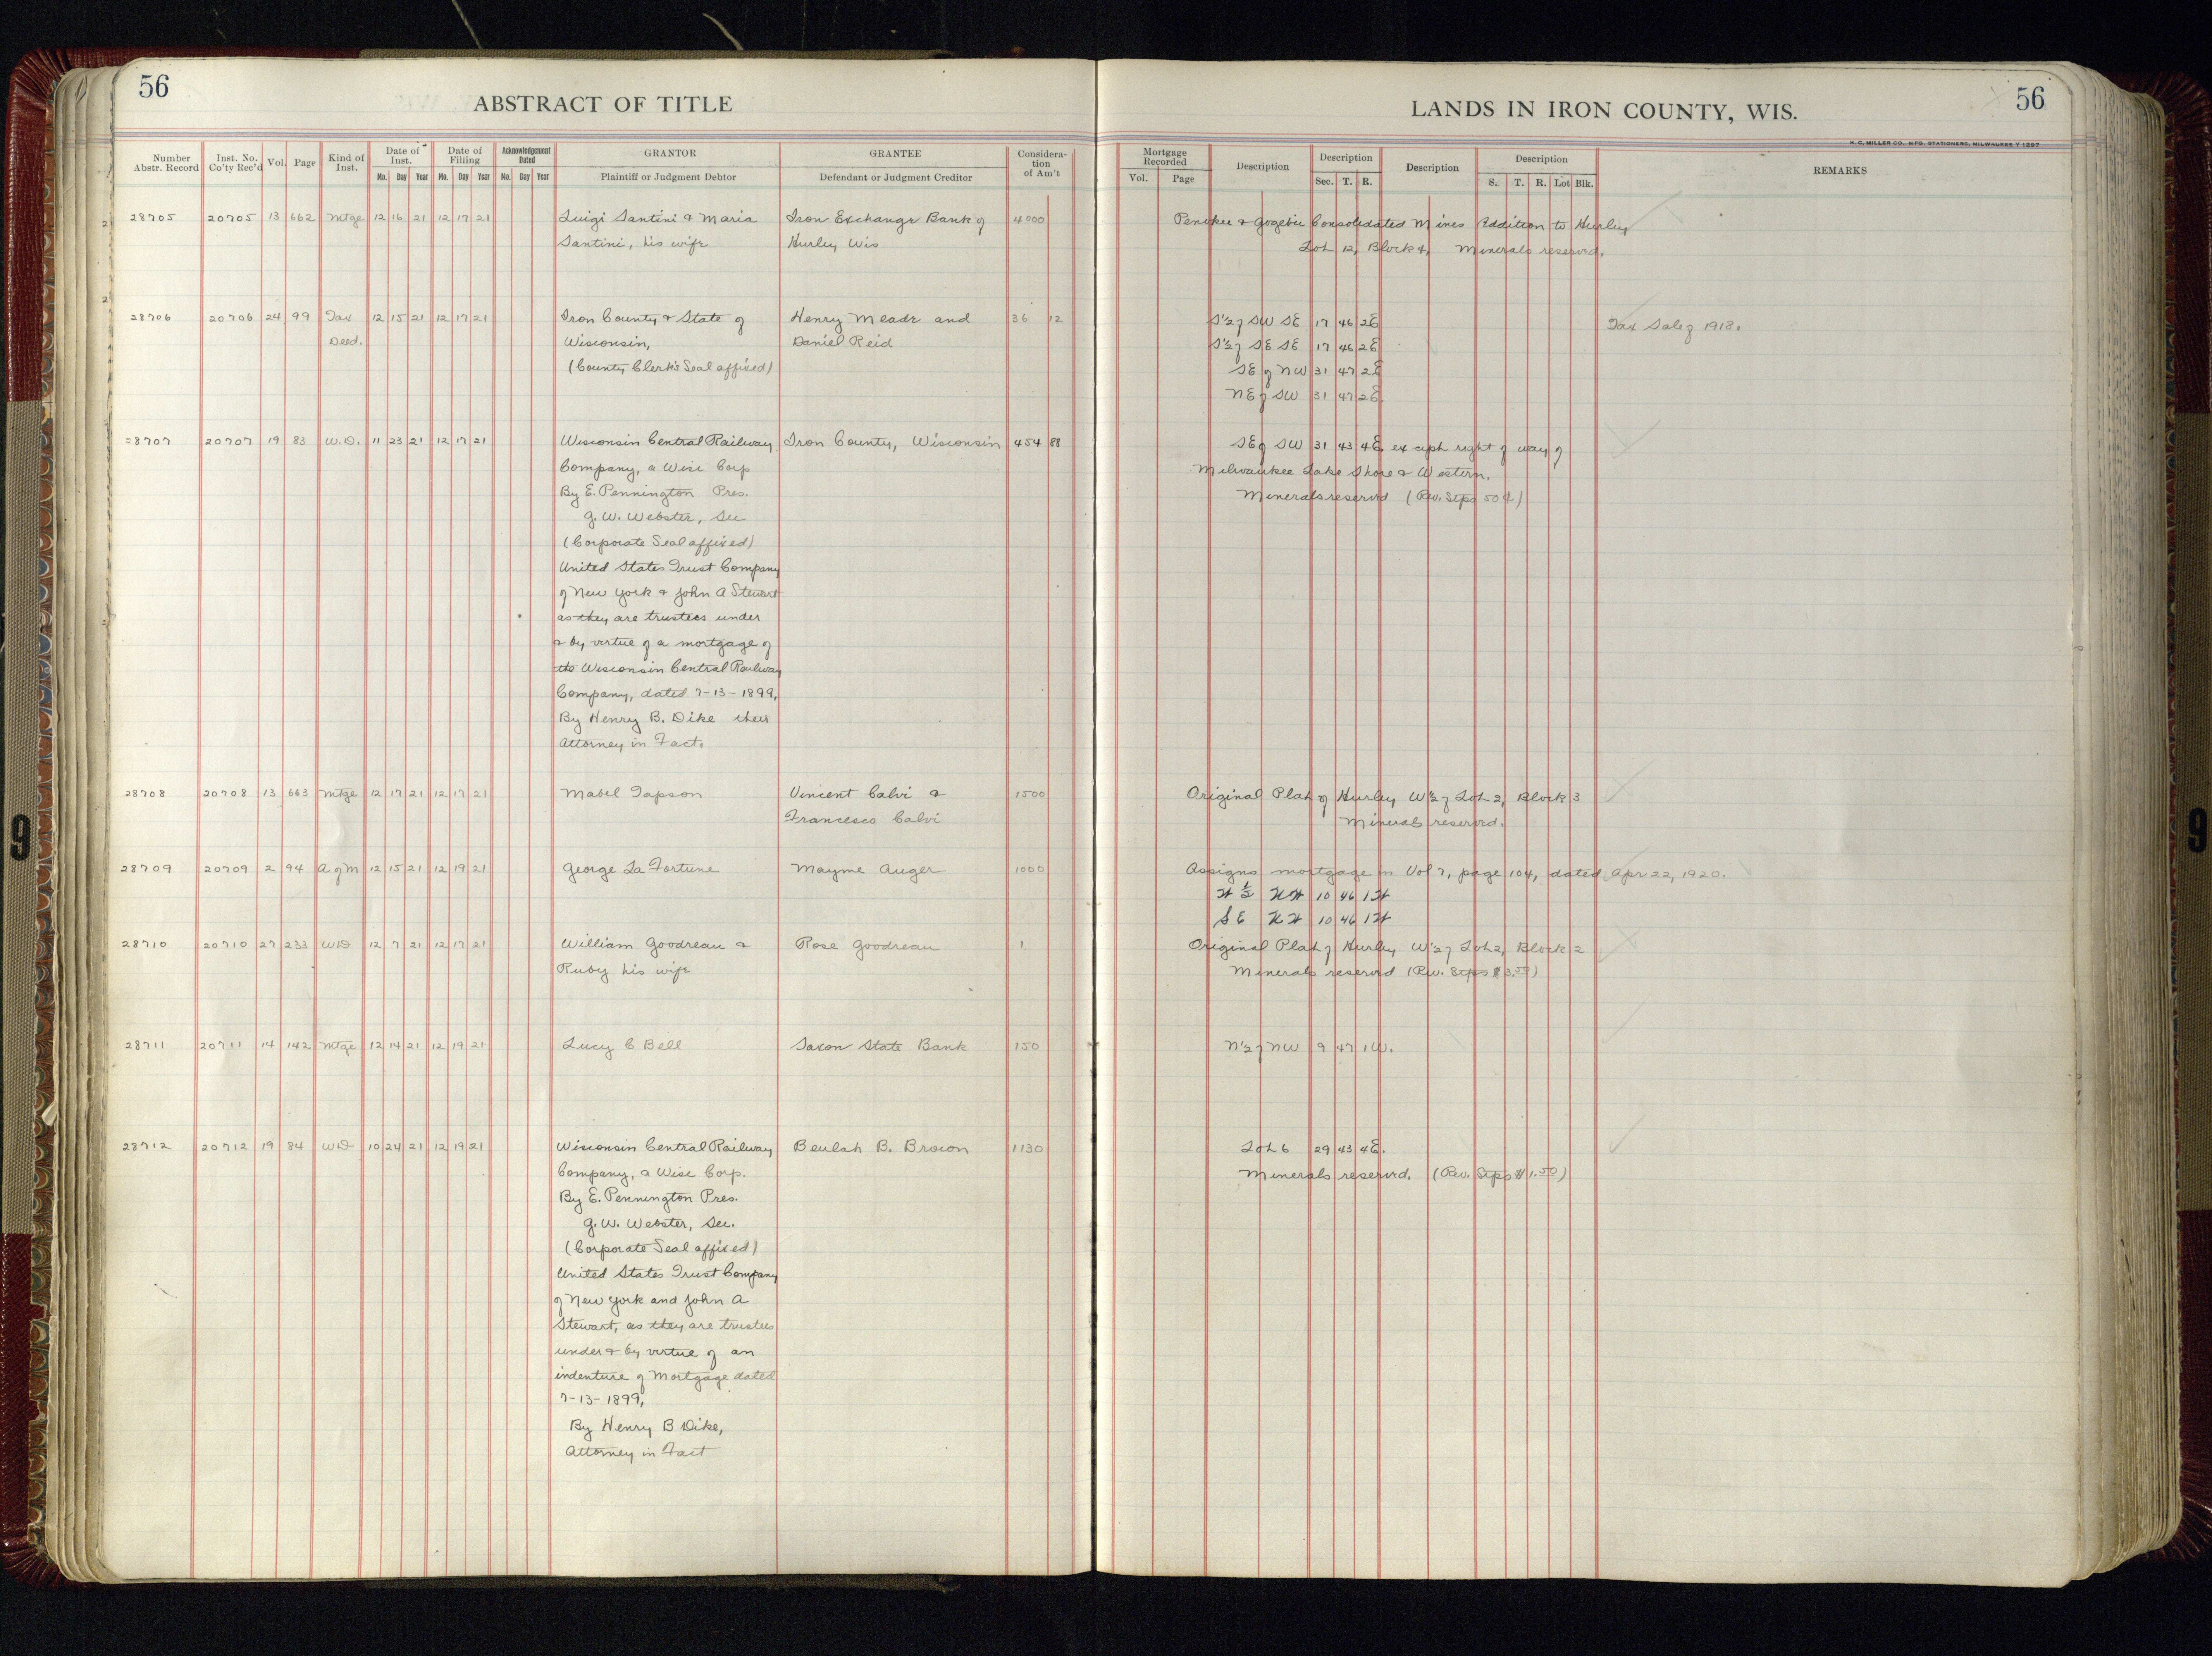 56
ABSTRACT OF TITLE
Number Abstr. Record Inst. No. Co'ty Rec'd Vol. Page Kind of Inst. Date of Inst. Mo. Day Year Date of Filling Mo. Day Year Acknowledgement Dated Mo. Day Year GRANTOR Plaintiff or Judgment Debtor GRANTEE Defendant or Judgment Creditor Considera-tion of Am't
28705 20705 13 662 Mtge 12 16 21 12 17 21 Luigi Santini & Maria Iron Exchange Bank of 4000
Santini, his wife Hurley Wis
28706 20706 24 99 Tax 12 15 21 12 17 21 Iron County & State of Henry Meade and 36 12
Deed. Wisconsin, Daniel Reid
(County Clerk's Seal affixed)
28707 20707 19 83 W.D. 11 23 21 12 17 21 Wisconsin Central Railway Iron County, Wisconsin 454 88
Company, a Wisc Corp
By E. Pennington Pres.
G. W. Webster, Sec
(Corporate Seal affixed)
United States Trust Company
of New York & John A Stewart
as they are trustees under
& by virtue of a mortgage of
the Wisconsin Central Railway
Company, dated 7-13-1899,
By Henry B. Dike their
Attorney in Fact.
28708 20708 13 663 Mtge 12 17 21 12 17 21 Mabel Tapson Vincent Calvi & 1500
Francesco Calvi
28709 20709 2 94 A of M 12 15 21 12 19 21 George La Fortune Mayme Auger 1000
28710 20710 27 233 WD 12 7 21 12 17 21 William Goodreau & Rose Goodreau 1
Ruby his wife
28711 20711 14 142 Mtge 12 14 21 12 19 21 Lucy C Bell Saxon State Bank 150
28712 20712 19 84 WD 10 24 21 12 19 21 Wisconsin Central Railway Beulah B. Brown 1130
Company, a Wisc Corp.
By E. Pennington Pres.
G. W. Webster, Sec.
(Corporate Seal affixed)
United States Trust Company
of New York and John A
Stewart, as they are trustees
under & by virtue of an
indenture of Mortgage dated
7-13-1899,
By Henry B Dike,
Attorney in Fact
LANDS IN IRON COUNTY, WIS.
56
H. C. MILLER CO., MFG. STATIONERS, MILWAUKEE
Mortgage Recorded Vol. Page Description Description Sec. T. R. Description Description S. T. R. Lot Blk. REMARKS
Penokee & Gogebic Consolidated Mines Addition to Hurley
Lot 12, Block 4, Minerals reserved.
S½ of SW SE 17 46 2E Tax Sale of 1918.
S½ of SE SE 17 46 2E
SE of NW 31 47 2E
NE of SW 31 47 2E.
SE of SW 31 43 4E, except right of way of
Milwaukee Lake Shore & Western.
Minerals reserved (Rev. Stps 50¢)
Original Plat of Hurley W½ of Lot 2, Block 3
Minerals reserved.
Assigns mortgage in Vol 7, page 104, dated Apr 22, 1920.
W ½ NW 10 46 1W
SE NW 10 46 1W
Original Plat of Hurley W½ of Lot 2, Block 2
Minerals reserved (Rev. Stps $3.50)
N½ of NW 9 47 1W.
Lot 6 29 43 4E.
Minerals reserved. (Rev. Stps $1.50)
9
9